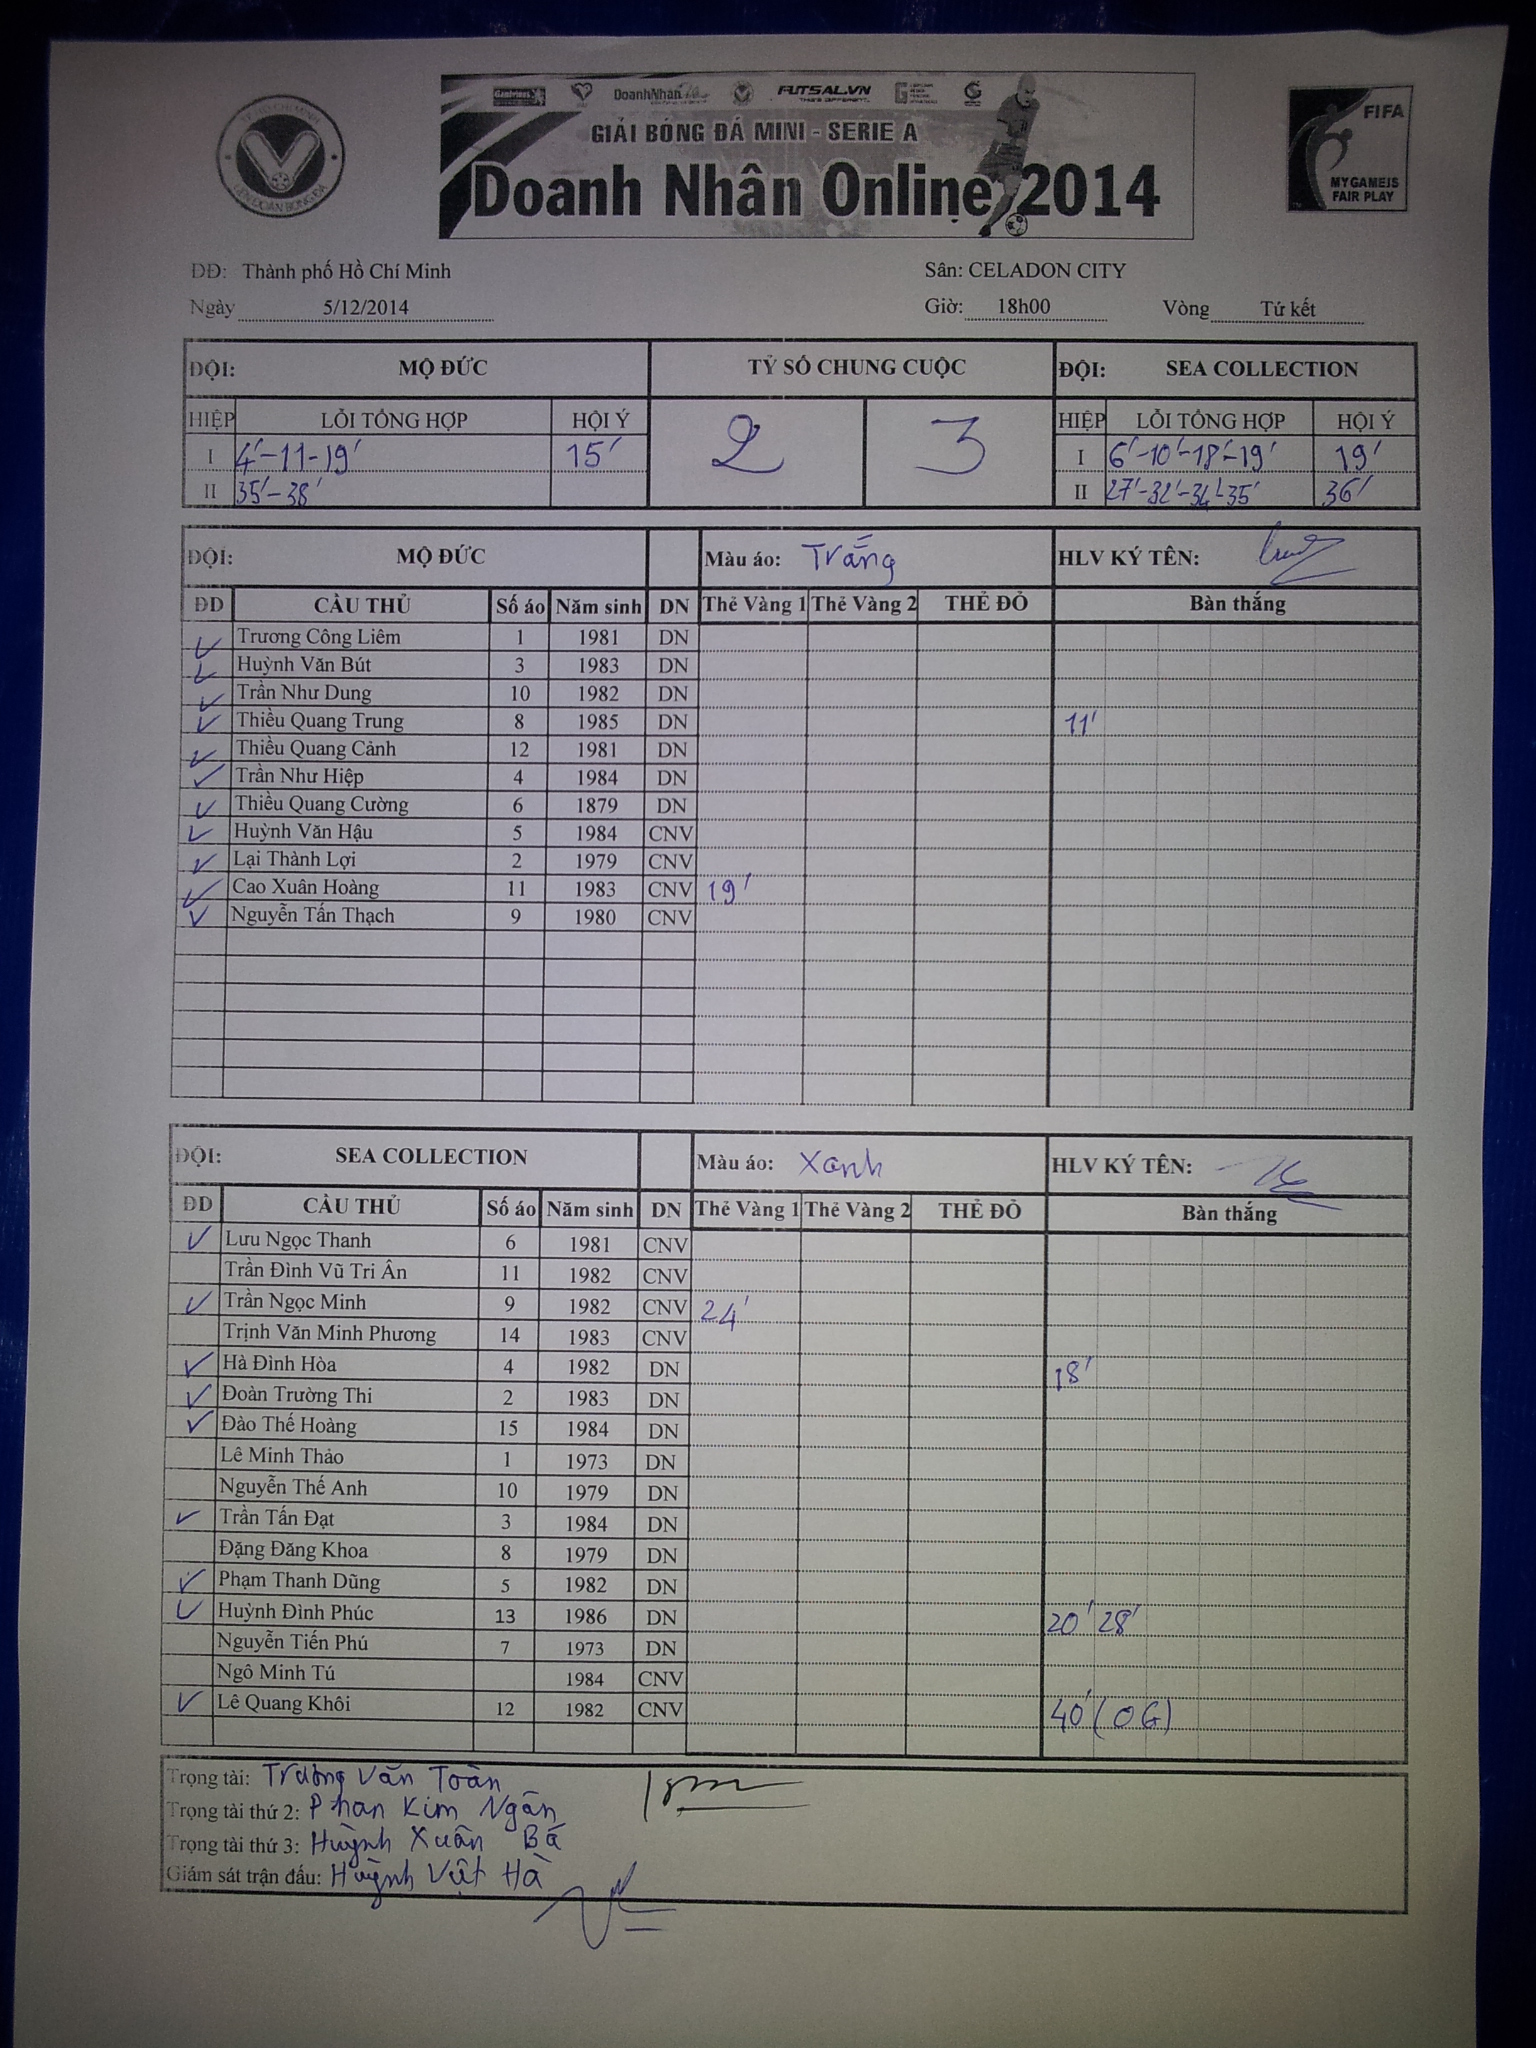 TP.HỒ CHÍ MINH
LIÊN ĐOÀN BÓNG ĐÁ
DoanhNhân FUTSAL.VN
GIẢI BÓNG ĐÁ MINI - SERIE A
Doanh Nhân Online 2014
FIFA
MY GAME IS
FAIR PLAY
ĐĐ: Thành phố Hồ Chí Minh Sân: CELADON CITY
Ngày 5/12/2014 Giờ: 18h00 Vòng Tứ kết
ĐỘI: MỘ ĐỨC TỶ SỐ CHUNG CUỘC ĐỘI: SEA COLLECTION
HIỆP LỖI TỔNG HỢP HỘI Ý 2 3 HIỆP LỖI TỔNG HỢP HỘI Ý
I 4'-11-19' 15' I 6'-10'-18'-19' 19'
II 35'-38' II 27'-32'-34'-35' 36'
ĐỘI: MỘ ĐỨC Màu áo: Trắng HLV KÝ TÊN:
ĐD CẦU THỦ Số áo Năm sinh DN Thẻ Vàng 1 Thẻ Vàng 2 THẺ ĐỎ Bàn thắng
Trương Công Liêm 1 1981 DN
Huỳnh Văn Bút 3 1983 DN
Trần Như Dung 10 1982 DN
Thiều Quang Trung 8 1985 DN 11'
Thiều Quang Cảnh 12 1981 DN
Trần Như Hiệp 4 1984 DN
Thiều Quang Cường 6 1879 DN
Huỳnh Văn Hậu 5 1984 CNV
Lại Thành Lợi 2 1979 CNV
Cao Xuân Hoàng 11 1983 CNV 19'
Nguyễn Tấn Thạch 9 1980 CNV
ĐỘI: SEA COLLECTION Màu áo: Xanh HLV KÝ TÊN:
ĐD CẦU THỦ Số áo Năm sinh DN Thẻ Vàng 1 Thẻ Vàng 2 THẺ ĐỎ Bàn thắng
Lưu Ngọc Thanh 6 1981 CNV
Trần Đình Vũ Tri Ân 11 1982 CNV
Trần Ngọc Minh 9 1982 CNV 24'
Trịnh Văn Minh Phương 14 1983 CNV
Hà Đình Hòa 4 1982 DN 18'
Đoàn Trường Thi 2 1983 DN
Đào Thế Hoàng 15 1984 DN
Lê Minh Thảo 1 1973 DN
Nguyễn Thế Anh 10 1979 DN
Trần Tấn Đạt 3 1984 DN
Đặng Đăng Khoa 8 1979 DN
Phạm Thanh Dũng 5 1982 DN
Huỳnh Đình Phúc 13 1986 DN 20' 28'
Nguyễn Tiến Phú 7 1973 DN
Ngô Minh Tú 1984 CNV
Lê Quang Khôi 12 1982 CNV 40' (OG)
Trọng tài: Trương Văn Toàn
Trọng tài thứ 2: Phan Kim Ngân
Trọng tài thứ 3: Huỳnh Xuân Bá
Giám sát trận đấu: Huỳnh Việt Hà